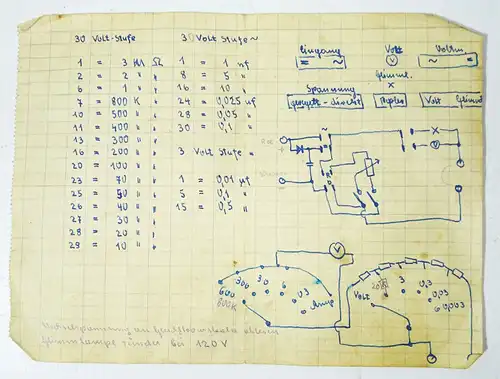 30 Volt-Stufe
1 = 3 MΩ
2 = 2 " "
6 = 1 " "
7 = 800 K "
10 = 500 " "
11 = 400 " "
13 = 300 " "
16 = 200 " "
20 = 100 " "
23 = 70 " "
25 = 50 " "
26 = 40 " "
27 = 30 " "
28 = 20 " "
29 = 10 " "
30 Volt Stufe ~
1 = 1 nf
8 = 5 "
16 = 10 "
24 = 0,025 µf
28 = 0,05 "
30 = 0,1 "
3 Volt Stufe "
1 = 0,01 µf
5 = 0,1 "
15 = 0,5 "
Eingang
= ~
Volt
V
Glimml.
x
Voltm.
~ =
Spannung
geregelt - direkt
Volt Glimml
~
=
+
V
600
300
30
6
0,3
600K
Amp
V
Volt
3
0,3
0,03
6 0,003
Vorspannung an
ablesen
Glimmlampe zündet bei 120 V